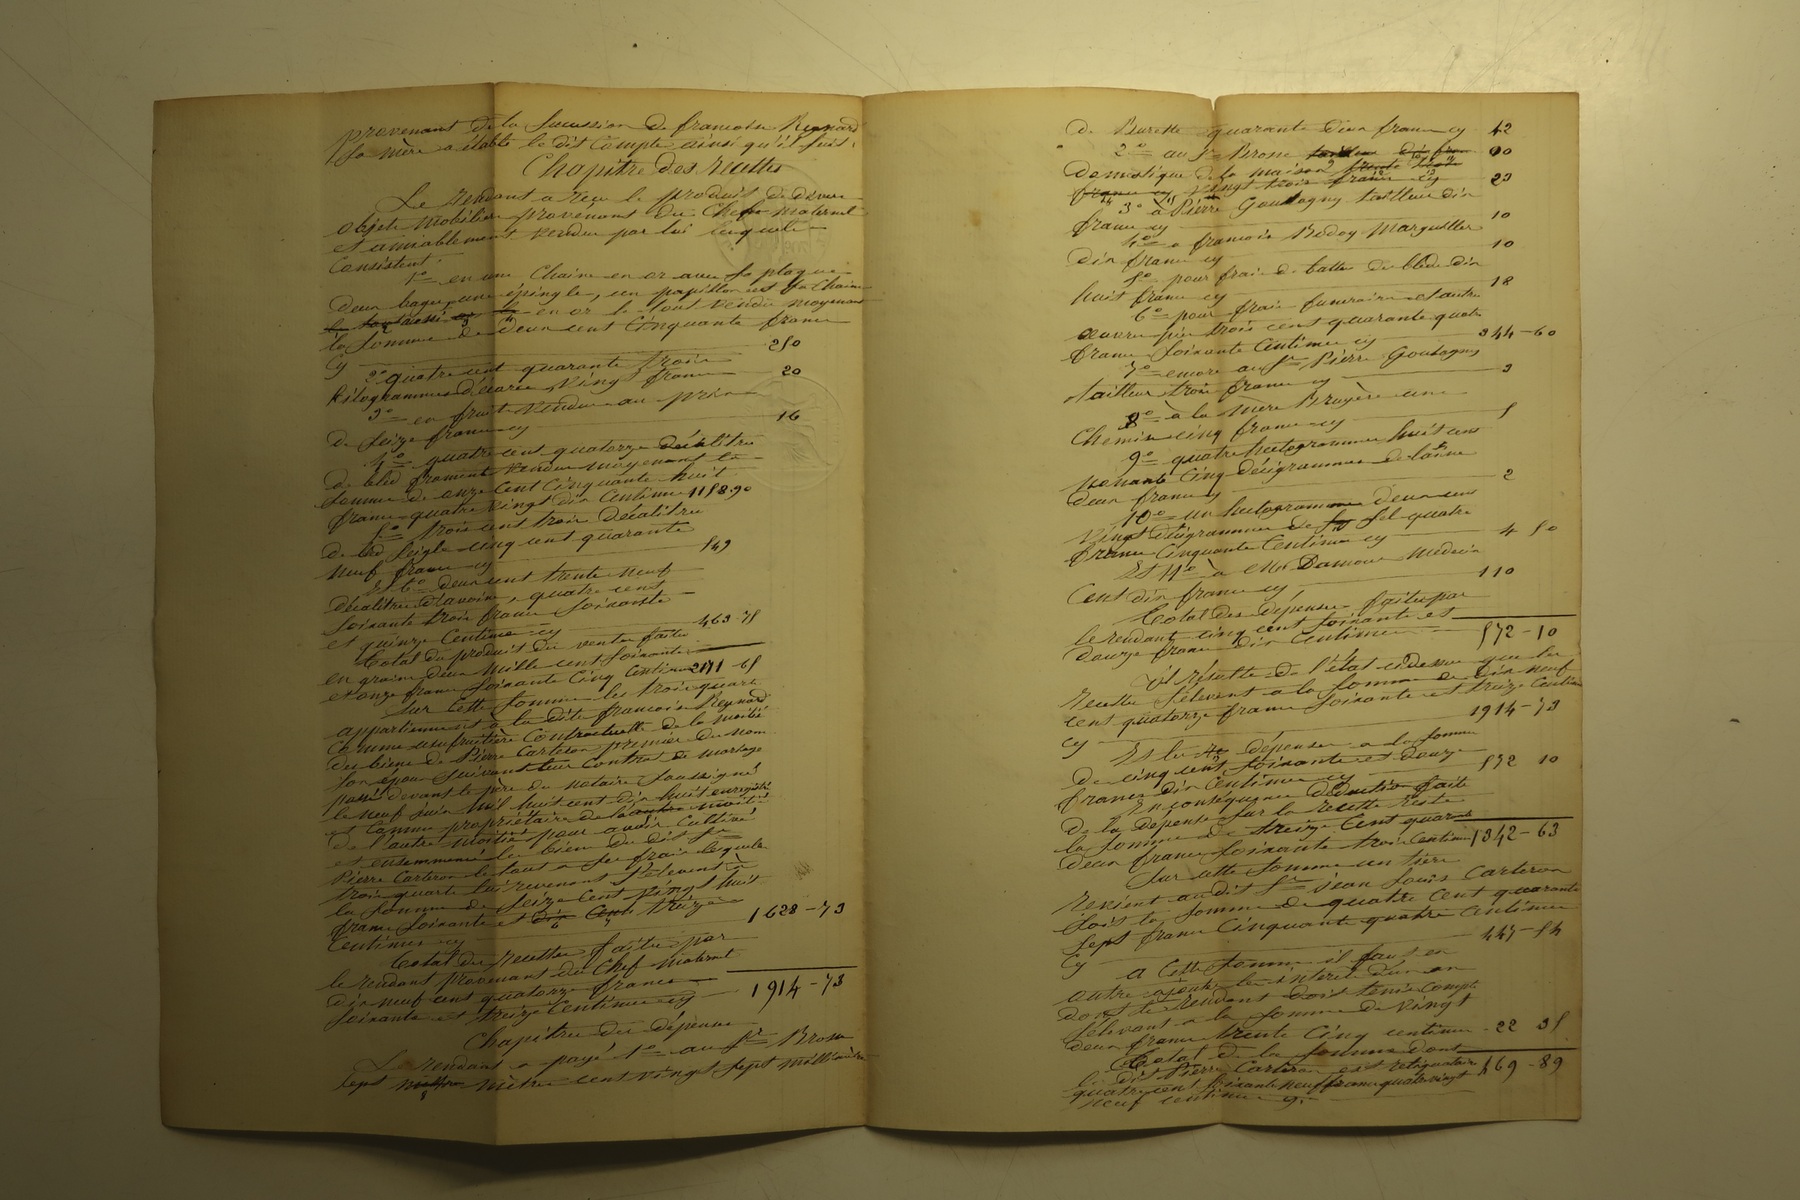 provenant de la succession de francoise Reynard
sa mère a établi le dit compte ainsi qu'il suit :
Chapitre des recettes
Le rendant a reçu le produit de divers
objets mobiliers provenant du Chef maternel
et amiablement vendus par lui lesquels
Consistent :
1° en une Chaine en or avec sa plaque
Deux bagues, une épingle, un papillon et sa Chaine
en or le tout vendu moyennant
la somme de deux cent Cinquante francs
cy 250
2° quatre cent quarante trois
kilogrammes d'écorce vingt francs 20
3° en fruits vendus au prix
de seize francs cy 16
4° quatre cent quatorze décalitres
de bled froment vendus moyennant la
somme de onze Cent Cinquante huit
francs quatre vingt dix Centimes 1158.90
5° trois cent trois décalitres
de bled seigle cinq cent quarante
neuf francs cy 549
Et 6° deux cent trente neuf
décalitres d'avoine, quatre cent
soixante trois francs soixante
et quinze Centimes cy 463-75
Total du produit des ventes faites
en grains deux mille cent soixante
et onze francs soixante Cinq Centimes 2171-65
Sur cette somme les trois quarts
appartiennent à la dite francoise Reynard
Comme usufruitière Contractuelle de la moitié
des biens de Pierre Carteron premier du nom
son époux suivant leur Contrat de mariage
passé devant le père du notaire soussigné
le neuf juin mil huit cent dix huit enregistré
et Comme propriétaire de l'autre moitié
de l'autre moitié pour avoir Cultivé
et ensemmencé les biens du dit Sr
Pierre Carteron le tout à ses frais lesquels
trois quarts lui revenant s'élèvent à
la somme de seize Cent vingt huit
francs soixante et dix Cent treize
Centimes cy 1628-73
Total des recettes faites par
le rendant provenant du Chef maternel
dix neuf cent quatorze francs
soixante et treize Centimes cy 1914-73
Chapitre des dépenses
Le rendant a payé 1° au Sr Brosse
sept mètres cent vingt sept millimètres
de Burette quarante deux francs cy 42
2° au Sr Brosse 90
domestique de la maison trente trois
francs cy vingt trois francs cy 23
3° à Pierre Goutagny tailleur dix
francs cy 10
4° à francois Bodoy Marguiller
dix francs cy 10
5° pour frais de batte de bled dix
huit francs cy 18
6° pour frais funeraires et autres
oeuvres pies trois cent quarante quatre
francs soixante Centimes cy 344-60
7° encore au Sr Pierre Goutagny
tailleur trois francs cy 3
8° à la mère Bruyère une
Chemise cinq francs cy 5
9° quatre hectogrammes huit cent
nonante Cinq décigrammes de laine
deux francs cy 2
10° un hectogramme deux cent
vingt décigrammes de sel quatre
francs Cinquante Centimes cy 4 50
Et 11° à Mr Damour Médecin
Cent dix francs cy 110
Total des dépenses faites par
le rendant cinq cent soixante et
douze francs dix Centimes 572-10
Il résulte de l'état cidessus que les
recettes s'élèvent à la somme de dix neuf
cent quatorze francs soixante et treize Centimes
cy 1914-73
Et les dépenses à la somme
de cinq cent soixante et douze
francs dix Centimes cy 572 10
En conséquence déduction faite
de la dépense sur la recette reste
la somme de treize Cent quarante
deux francs soixante trois Centimes 1342-63
Sur cette somme un tiers
revient au dit Sr jean Louis Carteron
soit la somme de quatre Cent quarante
sept francs Cinquante quatre Centimes
Cy 447-54
A cette somme il faut en
outre ajouter les intérêts d'un an
dont le rendant doit tenir Compte
s'élevant à la somme de vingt
deux francs trente Cinq centimes 22 35
Total de la somme dont
le dit Pierre Carteron est reliquataire
quatre cent soixante neuf francs quatre vingt 469-89
neuf centimes cy